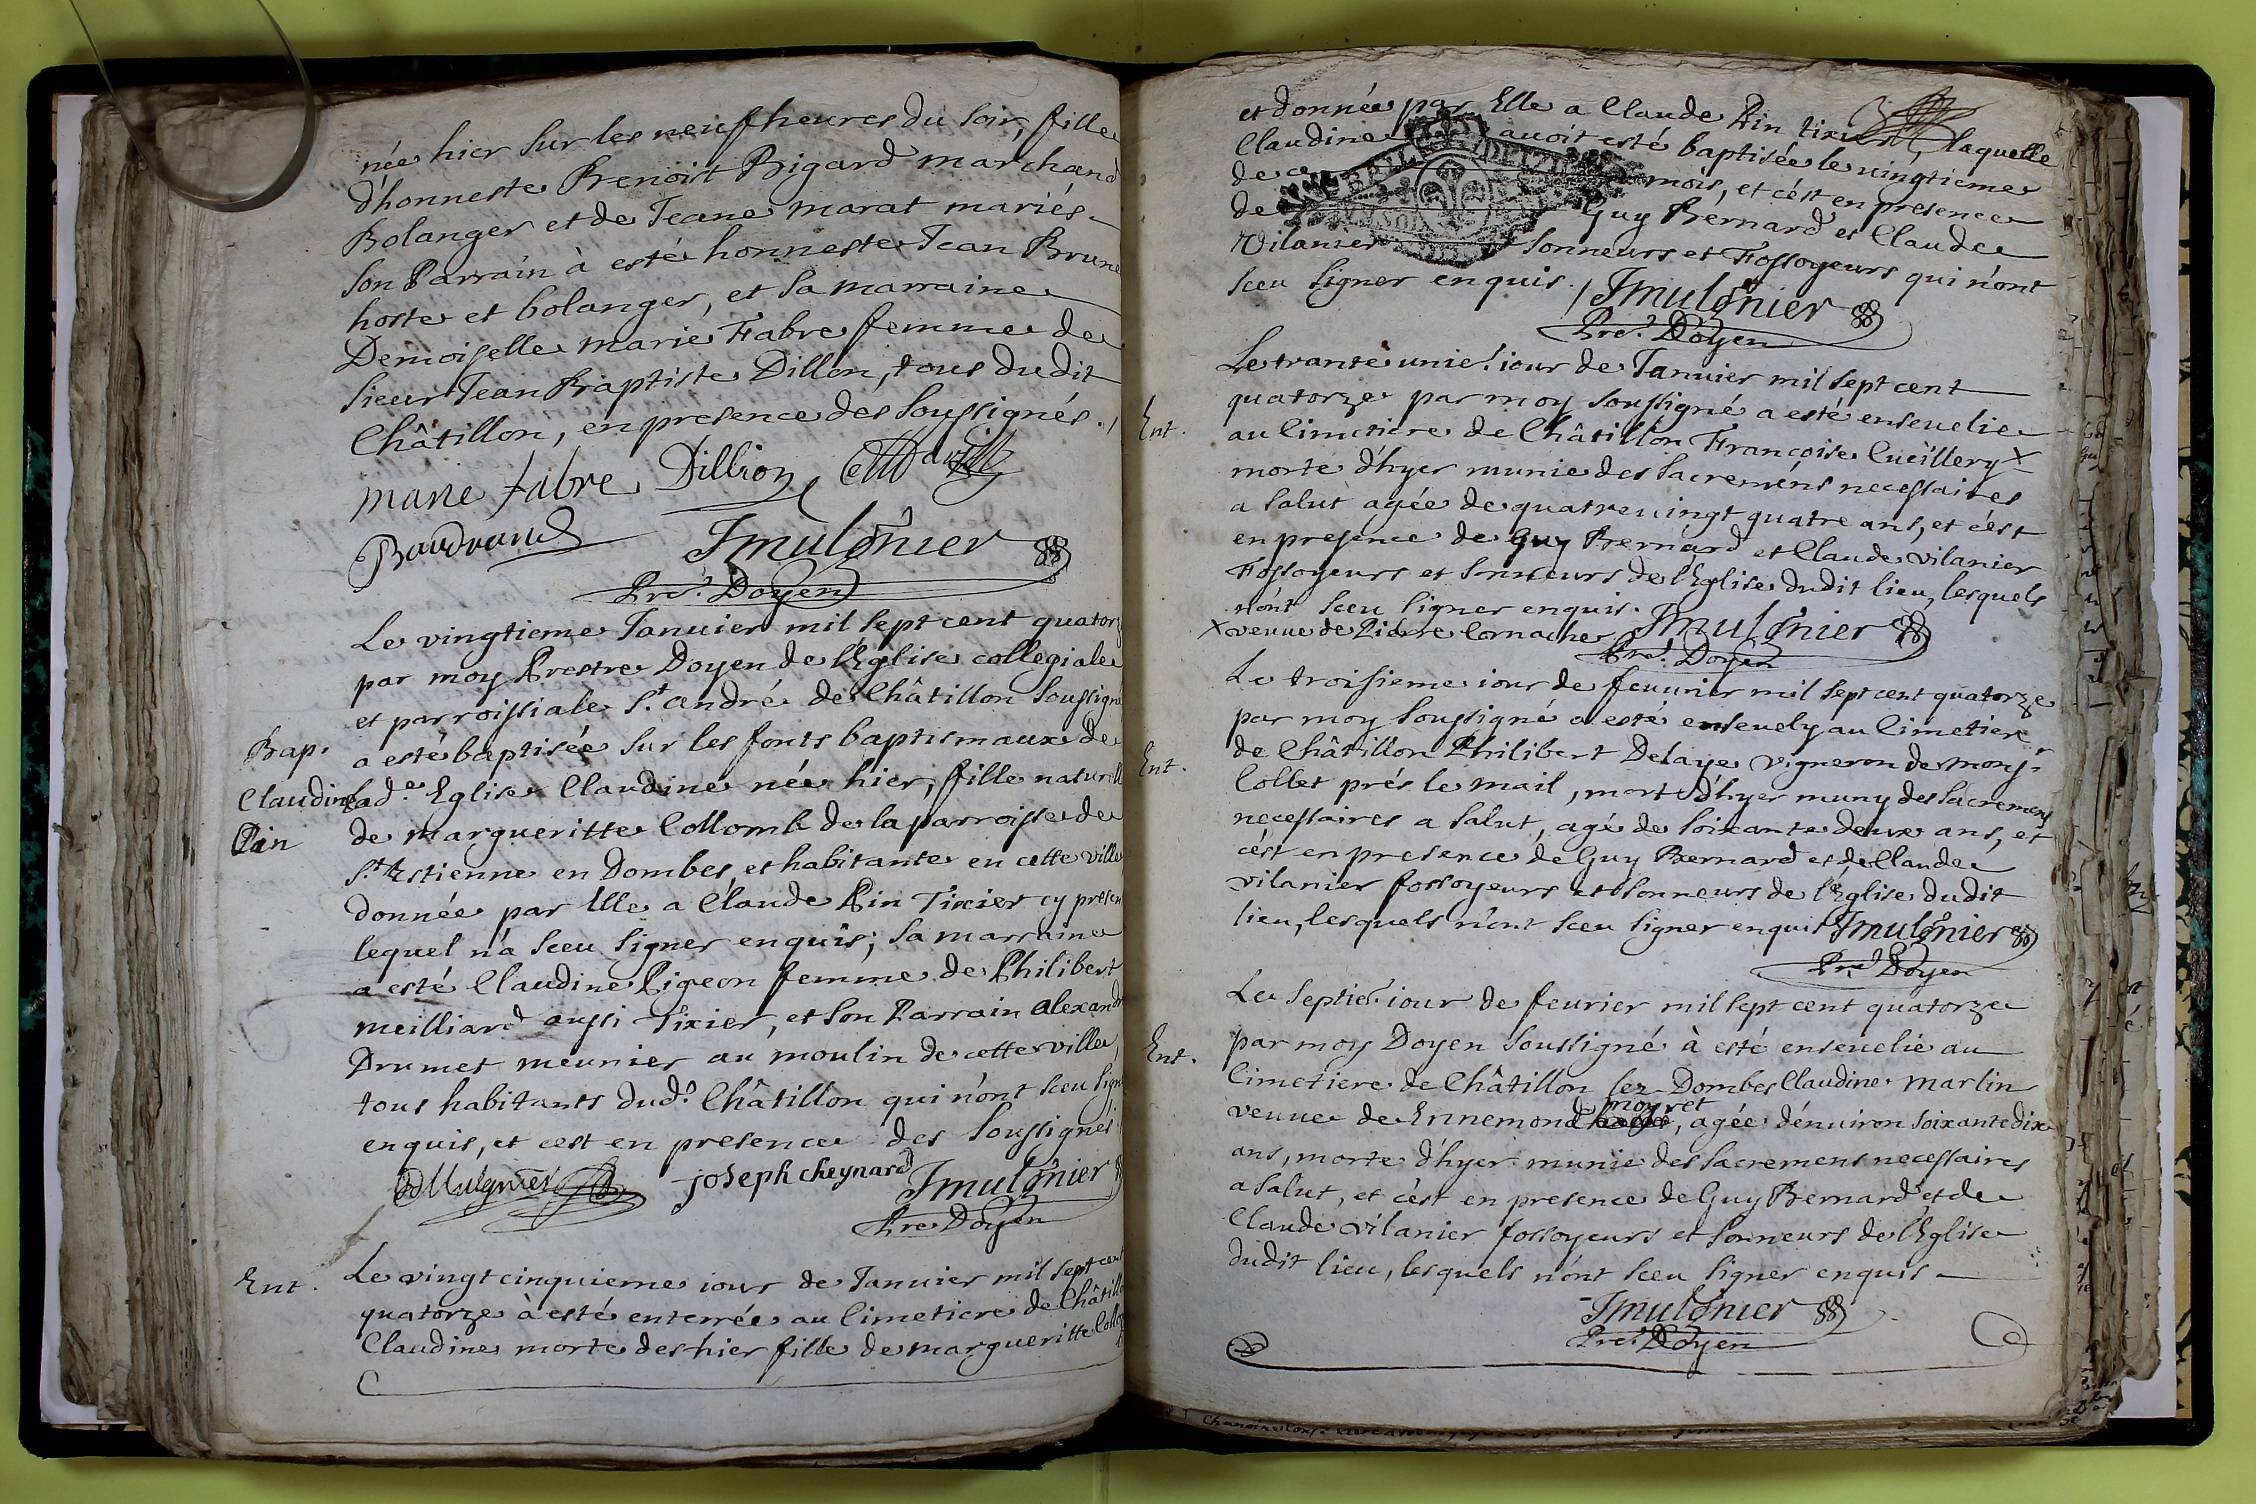 née hier sur les neuf heures du soir, fille
d'honneste Benoist Bigard marchand
Bolanger et de Jeane marat mariés
son Parrain à esté honneste Jean Brune
hoste et bolanger, et sa marraine
Demoiselle marie Fabre femme de
sieur Jean Baptiste Dillon, tous dudit
Châtillon, en presence des soussignés ./
marie fabre Dillion
Baudrand Jmulonier
Pre. Doyen
Le vingtieme Januier mil sept cent quatorz
par moy Prestre Doyen de l'Eglise collegiale
et parroissiale St. andré de Châtillon soussigné
Bap. a esté baptisée sur les fonts baptismaux de
Claudine lad.e Eglise Claudine née hier, fille naturelle
Pin de margueritte Collomb de la parroisse de
St. Estienne en Dombes, et habitante en cette ville
donnée par Elle a Claude Pin Tixier cy presen
lequel n'a sceu signer enquis; sa marraine
a esté Claudine Pigeon femme de Philibert
meilliard aussi Tixier, et son Parrain alexand
Drumet meunier au moulin de cette ville,
tous habitants dud.t Châtillon qui n'ont sceu sign
enquis, et cest en presence des soussignés
joseph cheynard Jmulonier
Pre Doyen
Ent. Le vingtcinquieme iour de Januier mil sept cent
quatorze à esté enterrée au Cimetiere de Châtillo
Claudine morte des hier fille de margueritte Collo
et donnée par Elle a Claude Pin tixier, laquelle
Claudine auoit esté baptisée le vingtieme
de mois, et c'est en presence
de Guy Bernard et Claude
Vilanier sonneurs et Fossoyeurs qui n'ont
sceu signer enquis ./ Jmulonier
Pre. Doyen
Le trante unie. iour de Januier mil sept cent
quatorze par moy soussigné a esté enseuelie
Ent. au Cimetiere de Châtillon Françoise Cucillery x
morte d'hyer munie des sacremens necessaires
a salut agée de quatreuingt quatre ans, et c'est
en presence de Guy Bernard et Claude Vilanier
Fossoyeurs et sonneurs de l'Eglise dudit lieu, lesquels
n'ont sceu signer enquis. Jmulonier
x veuue de Pierre Cornacher Pre. Doyen
Le troisieme iour de feuurier mil sept cent quatorze
par moy soussigné a esté enseuely au Cimetiere
Ent. de Châtillon Philibert Delaye vigneron de monsr.
Collet prés le mail, mort d'hyer muny des sacremens
necessaires a salut, agé de soixante deux ans, et
c'est en presence de Guy Bernard et de Claude
vilanier fossoyeurs et sonneurs de l'Eglise dudit
lieu, lesquels n'ont sceu signer enquis Jmulonier
Pre. Doyen
Le septie. iour de feurier mil sept cent quatorze
Ent. par moy Doyen soussigné à esté enseuelie au
Cimetiere de Châtillon lez-Dombes Claudine Marlin
moyret
veuue de Ennemond, agée d'enuiron soixante dix
ans, morte d'hyer munie des sacremens necessaires
a salut, et c'est en presence de Guy Bernard et de
Claude vilanier fossoyeurs et sonneurs de l'Eglise
dudit lieu, lesquels n'ont sceu signer enquis
Jmulonier
Pre. Doyen